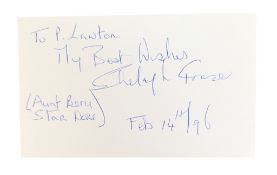 To P. Lawton
My Best Wishes
Shelagh Fraser
(Aunt Beru
Star Wars)
Feb 14th/96